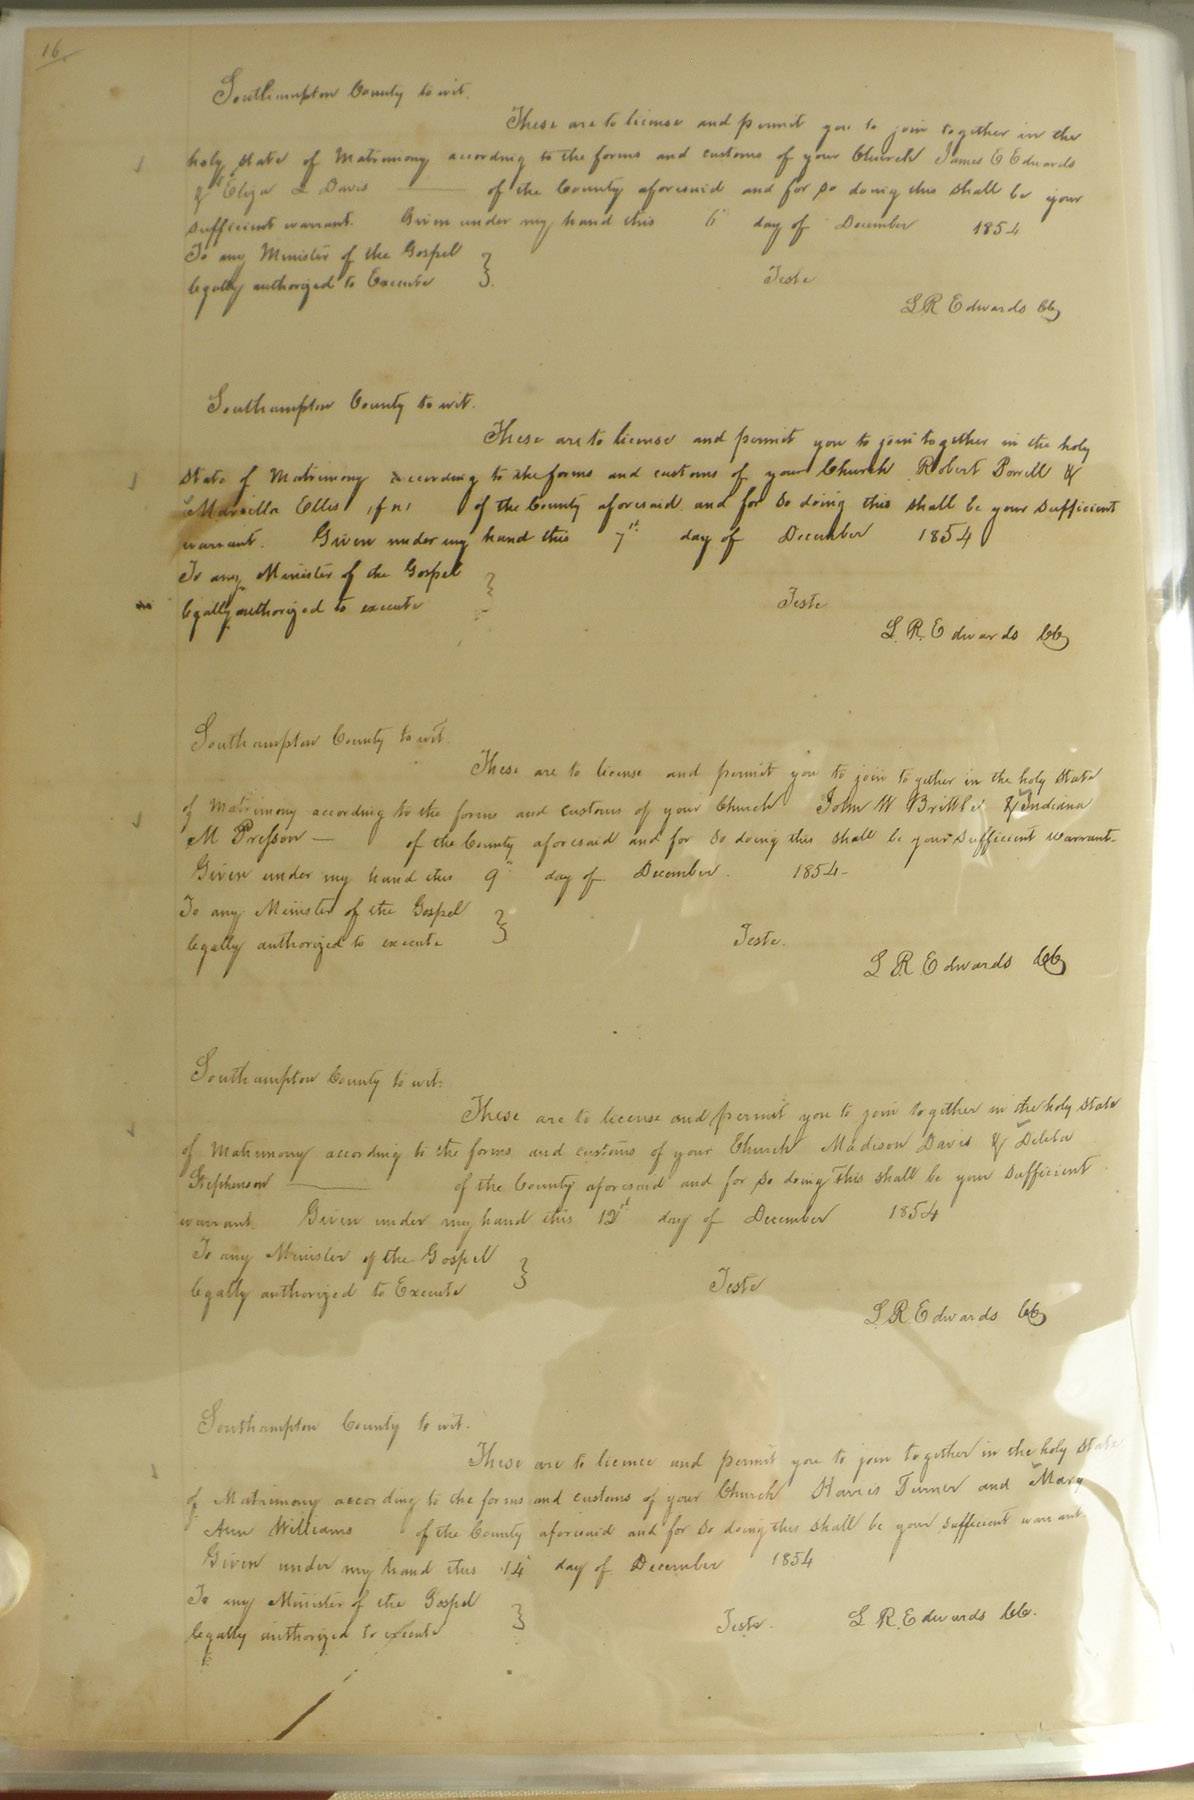 16
Southampton County to wit.
These are to license and permit you to join together in the
holy state of Matrimony according to the forms and customs of your Church James E Edwards
& Eliza L Davis of the County aforesaid and for so doing this shall be your
sufficient warrant. Given under my hand this 6" day of December 1854
To any Minister of the Gospel
legally authorized to Execute
Teste
L R Edwards CC
Southampton County to wit.
These are to license and permit you to join together in the holy
state of Matrimony according to the forms and customs of your Church Robert Powell &
Ellis (fn) of the County aforesaid and for so doing this shall be your sufficient
warrant. Given under my hand this 7th day of December 1854
To any Minister of the Gospel
legally authorized to execute
Teste
L. R. Edwards CC
Southampton County to wit.
These are to license and permit you to join together in the holy state
of Matrimony according to the forms and customs of your Church John W Brittle & Indiana
M Presson — of the County aforesaid and for so doing this shall be your sufficient warrant-
Given under my hand this 9" day of December. 1854-
To any Minister of the Gospel
legally authorized to execute
Teste.
L R Edwards CC
Southampton County to wit:
These are to license and permit you to join together in the holy state
of Matrimony according to the forms and customs of your Church Madison Davis &
Stephenson of the County aforesaid and for so doing this shall be your sufficient
warrant. Given under my hand this 12th day of December 1854
To any Minister of the Gospel
legally authorized to Execute
Teste
L. R. Edwards CC
Southampton County to wit.
These are to licence and permit you to join together in the holy state
of Matrimony according to the forms and customs of your Church Harris Turner and Mary
Ann Williams of the County aforesaid and for so doing this shall be your sufficient warrant.
Given under my hand this 14" day of December 1854
To any Minister of the Gospel
legally authorized to execute
Teste. L R. Edwards CC.